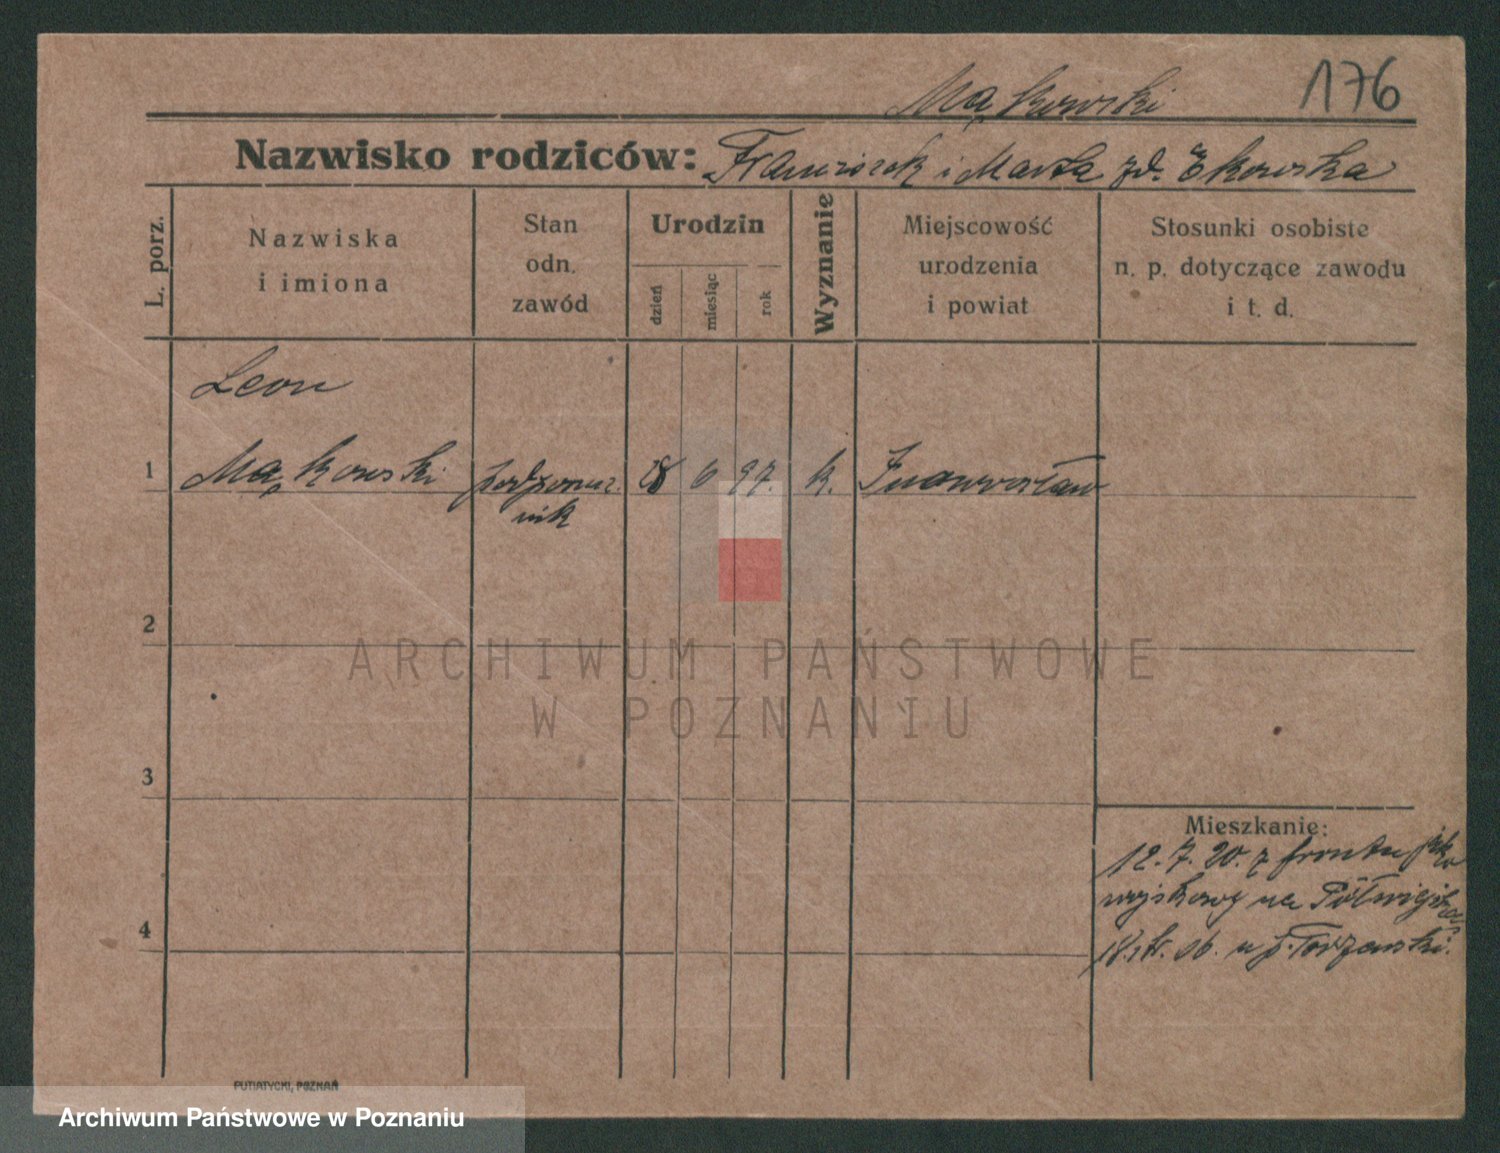 Mąkowski
176
Nazwisko rodziców: Franciszek i Marta zd.
L. porz.
Nazwiska
i imiona
Stan
odn.
zawód
Urodzin
dzień
miesiąc
rok
Wyznanie
Miejscowość
urodzenia
i powiat
Stosunki osobiste
n. p. dotyczące zawodu
i t. d.
Leon
1 Mąkowski podporucz. 18 6 97. k. Inowrocław
nik
2
ARCHIWUM PAŃSTWOWE
W POZNANIU
3
Mieszkanie:
12.7.20. z frontu jako
wojskowy na Półwiejska
4
18, u p.
PUTIATYCKI, POZNAŃ
Archiwum Państwowe w Poznaniu